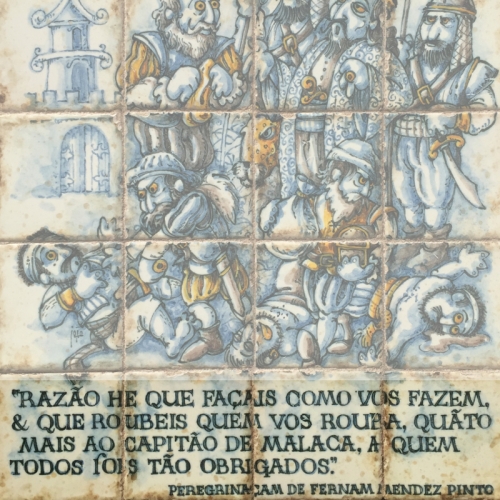 "RAZÃO HE QUE FAÇAIS COMO VOS FAZEM,
& QUE ROUBEIS QUEM VOS ROUBA, QUÃTO
MAIS AO CAPITÃO DE MALACA, A QUEM
TODOS SOIS TÃO OBRIGADOS."
PEREGRINAÇAM DE FERNAM MENDEZ PINTO